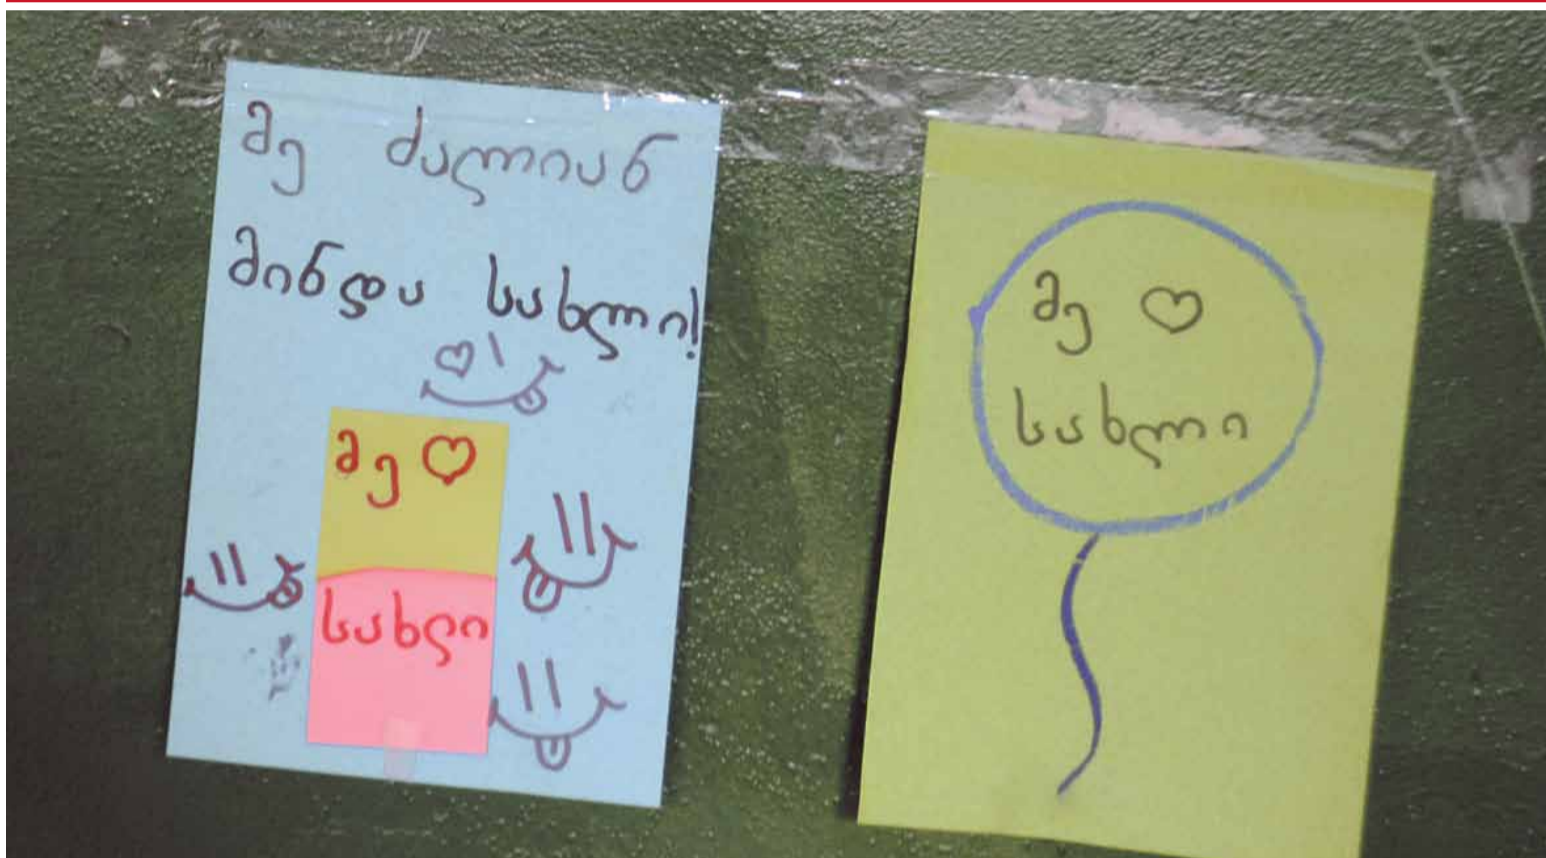 მე ძალიან
მინდა სახლი!
მე ♡
სახლი
მე ♡
სახლი